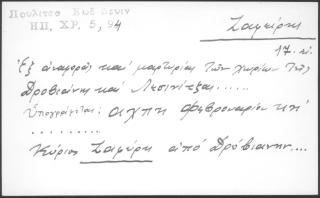 Πουλίτσα Κωδ Δρυιν
ΗΠ, ΧΡ. 5, 94
Ζαμύρης
17. αἰ.
Ἐξ ἀναφορᾶς καί μαρτυρίας τῶν χωρίων τῆς
Δροβιάνης καί Λεσινίτζας......
Ὑπογράφεται: αχπη φεβρουαρίου κη'
.........
Κύριος Ζαμύρη ἀπό Δρόβιανην....